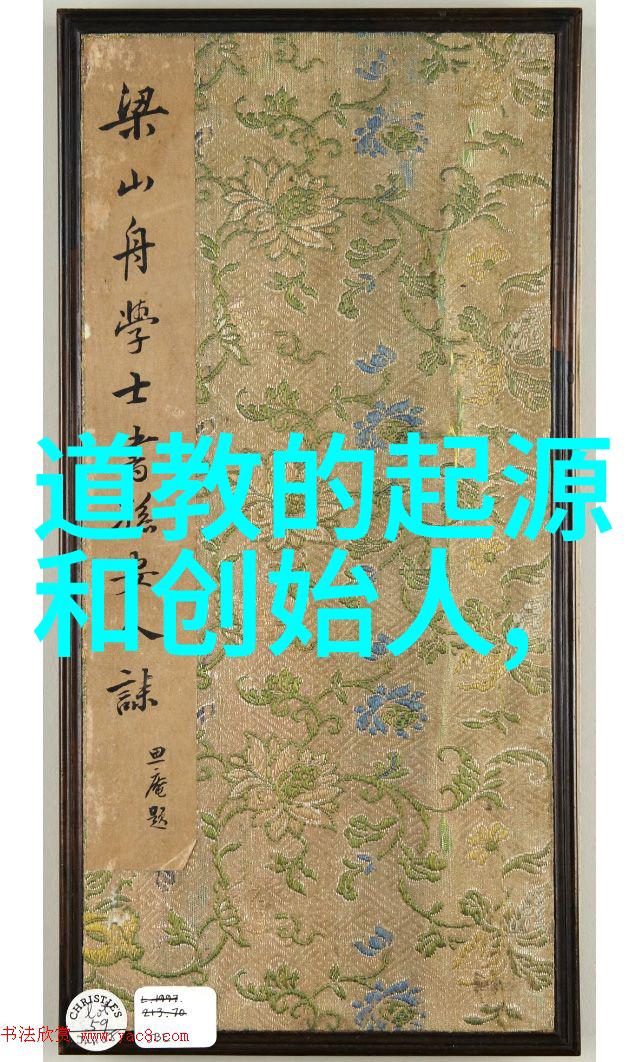 梁山舟學士書孫安人誄
庵題
道教的起源
和创始人,
CHRISTIE'S
Lot
59
L.1997.
213.70
书法欣赏 www.yac8.com